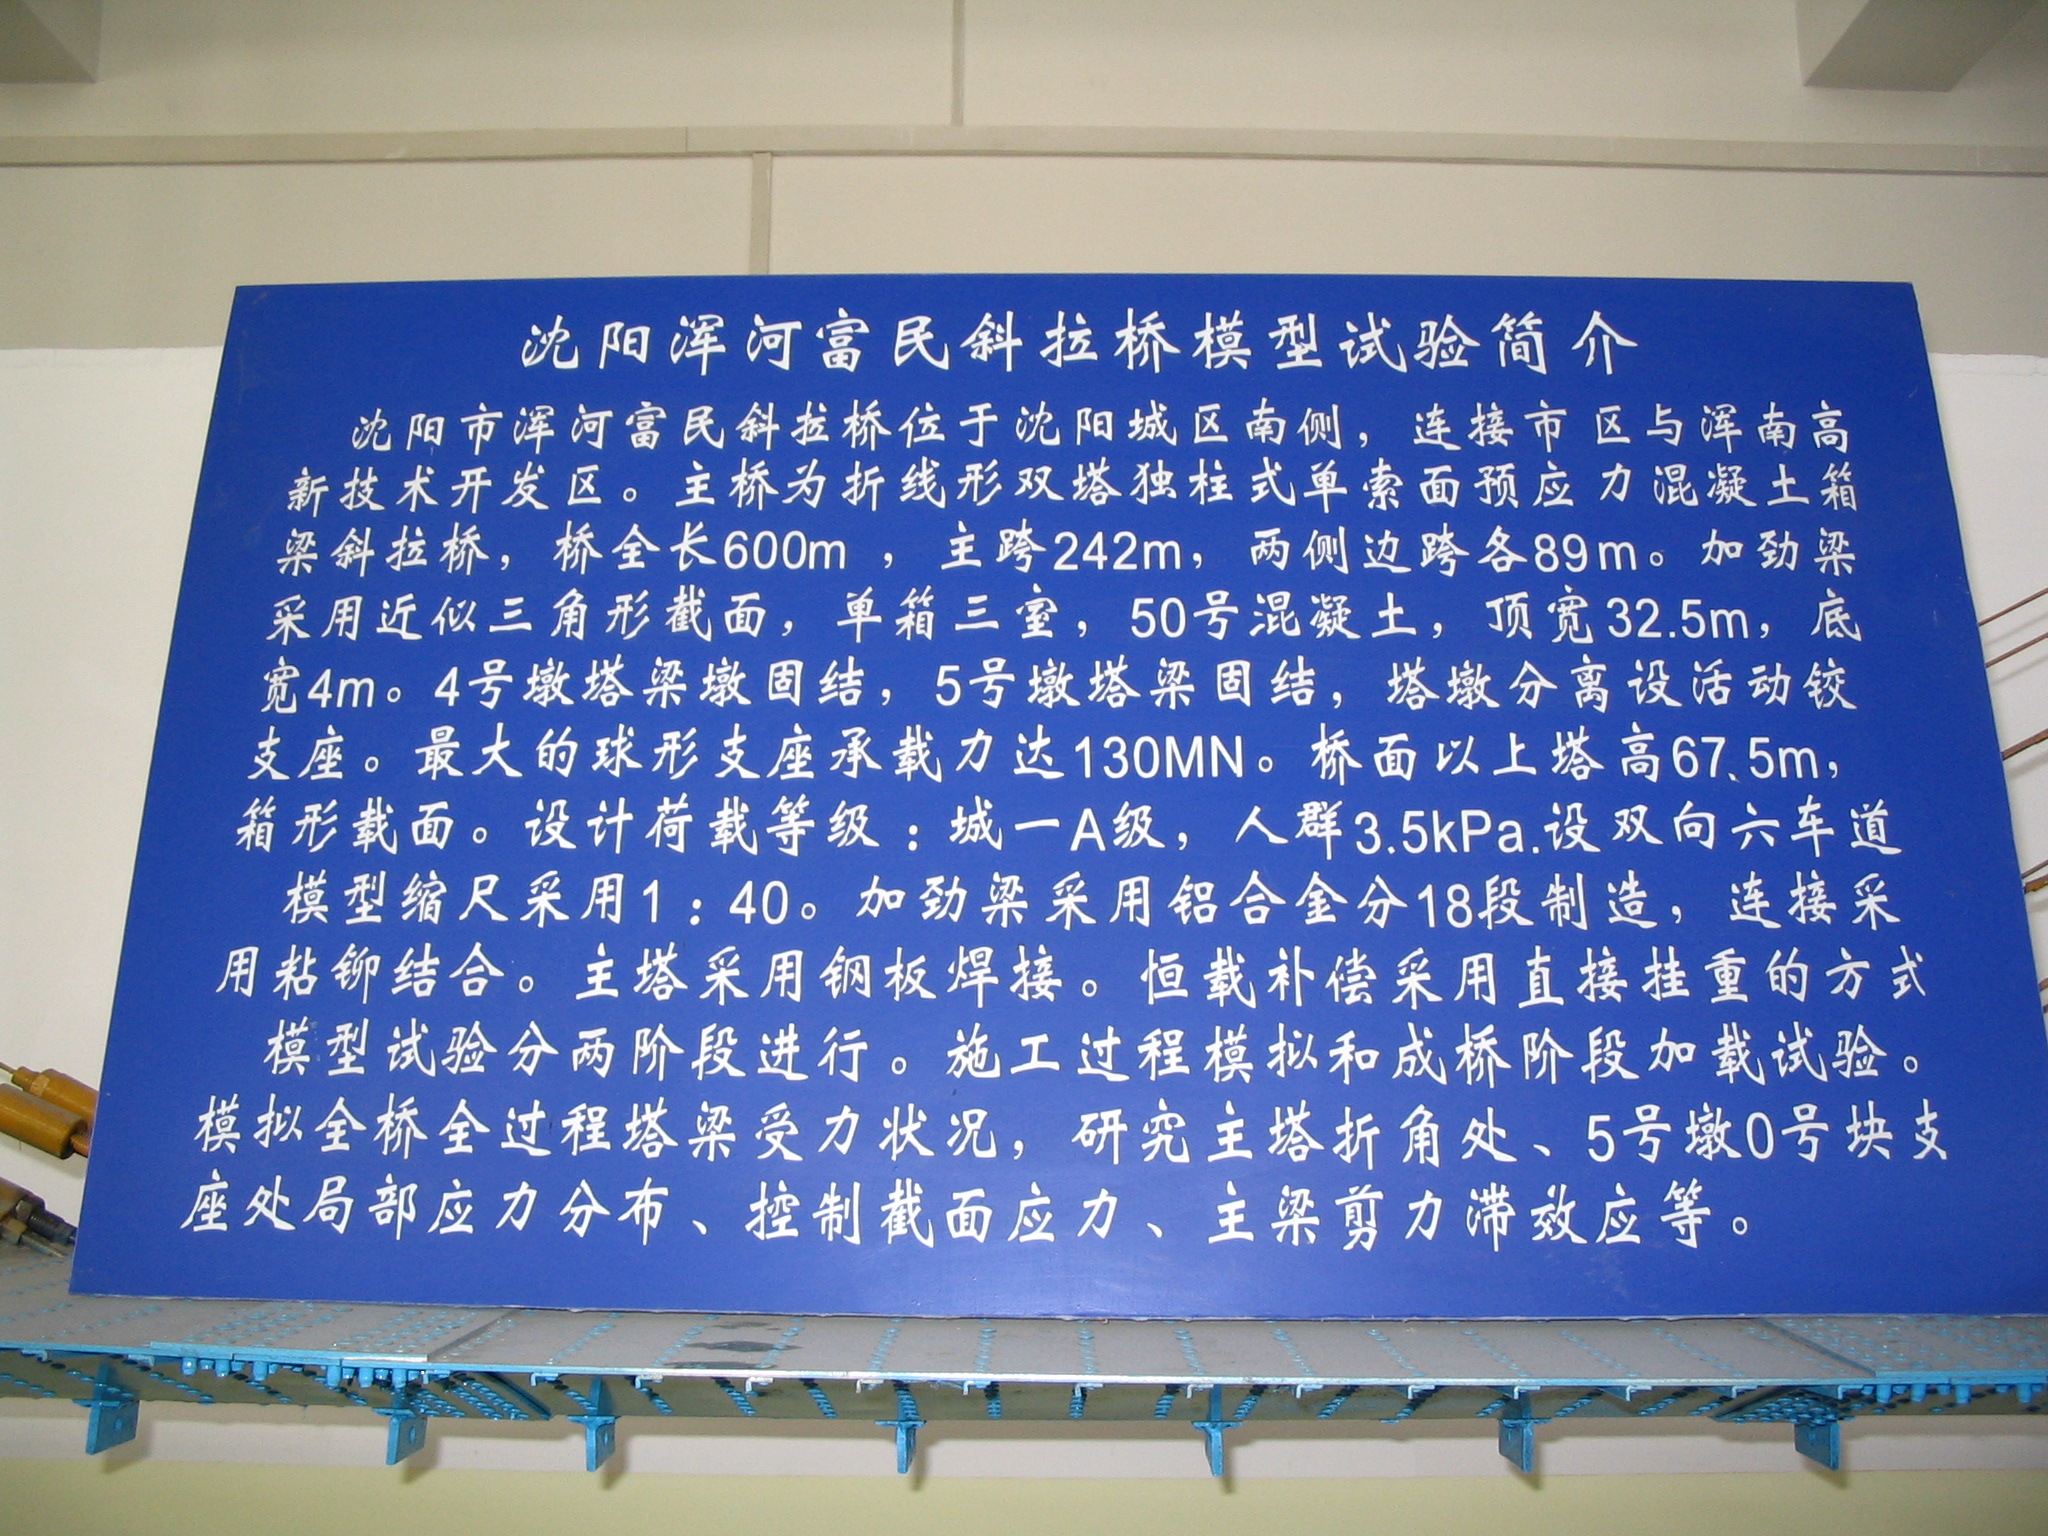 沈阳浑河富民斜拉桥模型试验简介
沈阳市浑河富民斜拉桥位于沈阳城区南侧，连接市区与浑南高
新技术开发区。主桥为折线形双塔独柱式单索面预应力混凝土箱
梁斜拉桥，桥全长600m，主跨242m，两侧边跨各89m。加劲梁
采用近似三角形截面，单箱三室，50号混凝土，顶宽32.5m，底
宽4m。4号墩塔梁墩固结，5号墩塔梁固结，塔墩分离设活动铰
支座。最大的球形支座承载力达130MN。桥面以上塔高67.5m，
箱形载面。设计荷载等级：城一A级，人群3.5kPa.设双向六车道
模型缩尺采用1：40。加劲梁采用铝合金分18段制造，连接采
用粘铆结合。主塔采用钢板焊接。恒载补偿采用直接挂重的方式
模型试验分两阶段进行。施工过程模拟和成桥阶段加载试验。
模拟全桥全过程塔梁受力状况，研究主塔折角处、5号墩0号块支
座处局部应力分布、控制截面应力、主梁剪力滞效应等。